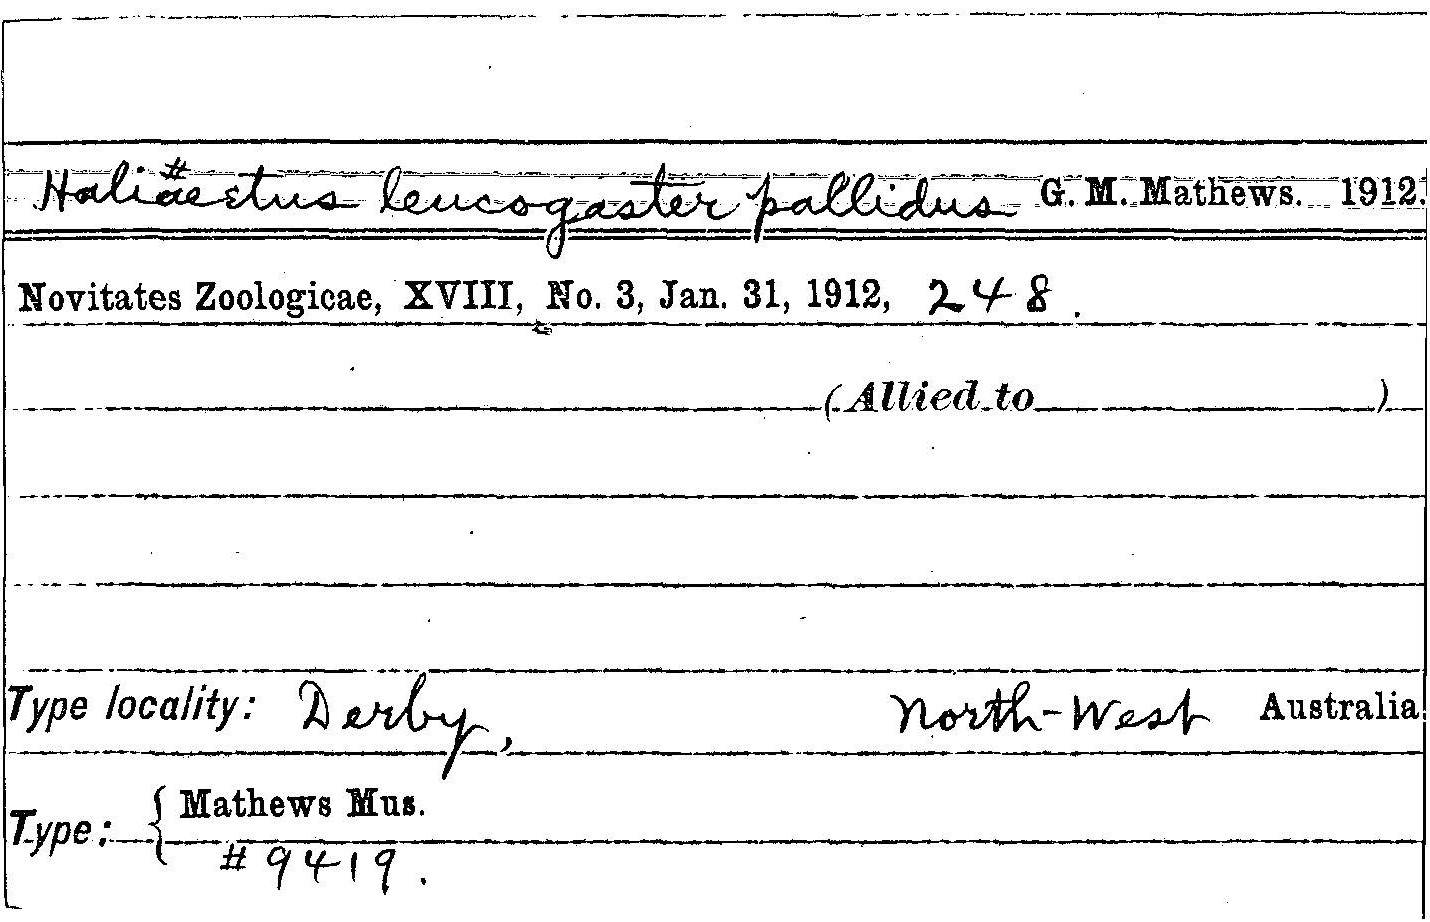 Haliaectus leucogaster pallidus G. M. Mathews. 1912.
Novitates Zoologicae, XVIII, No. 3, Jan. 31, 1912, 248.
(Allied to )
Type locality: Derby, North-West Australia
Type: { Mathews Mus.
#9419.